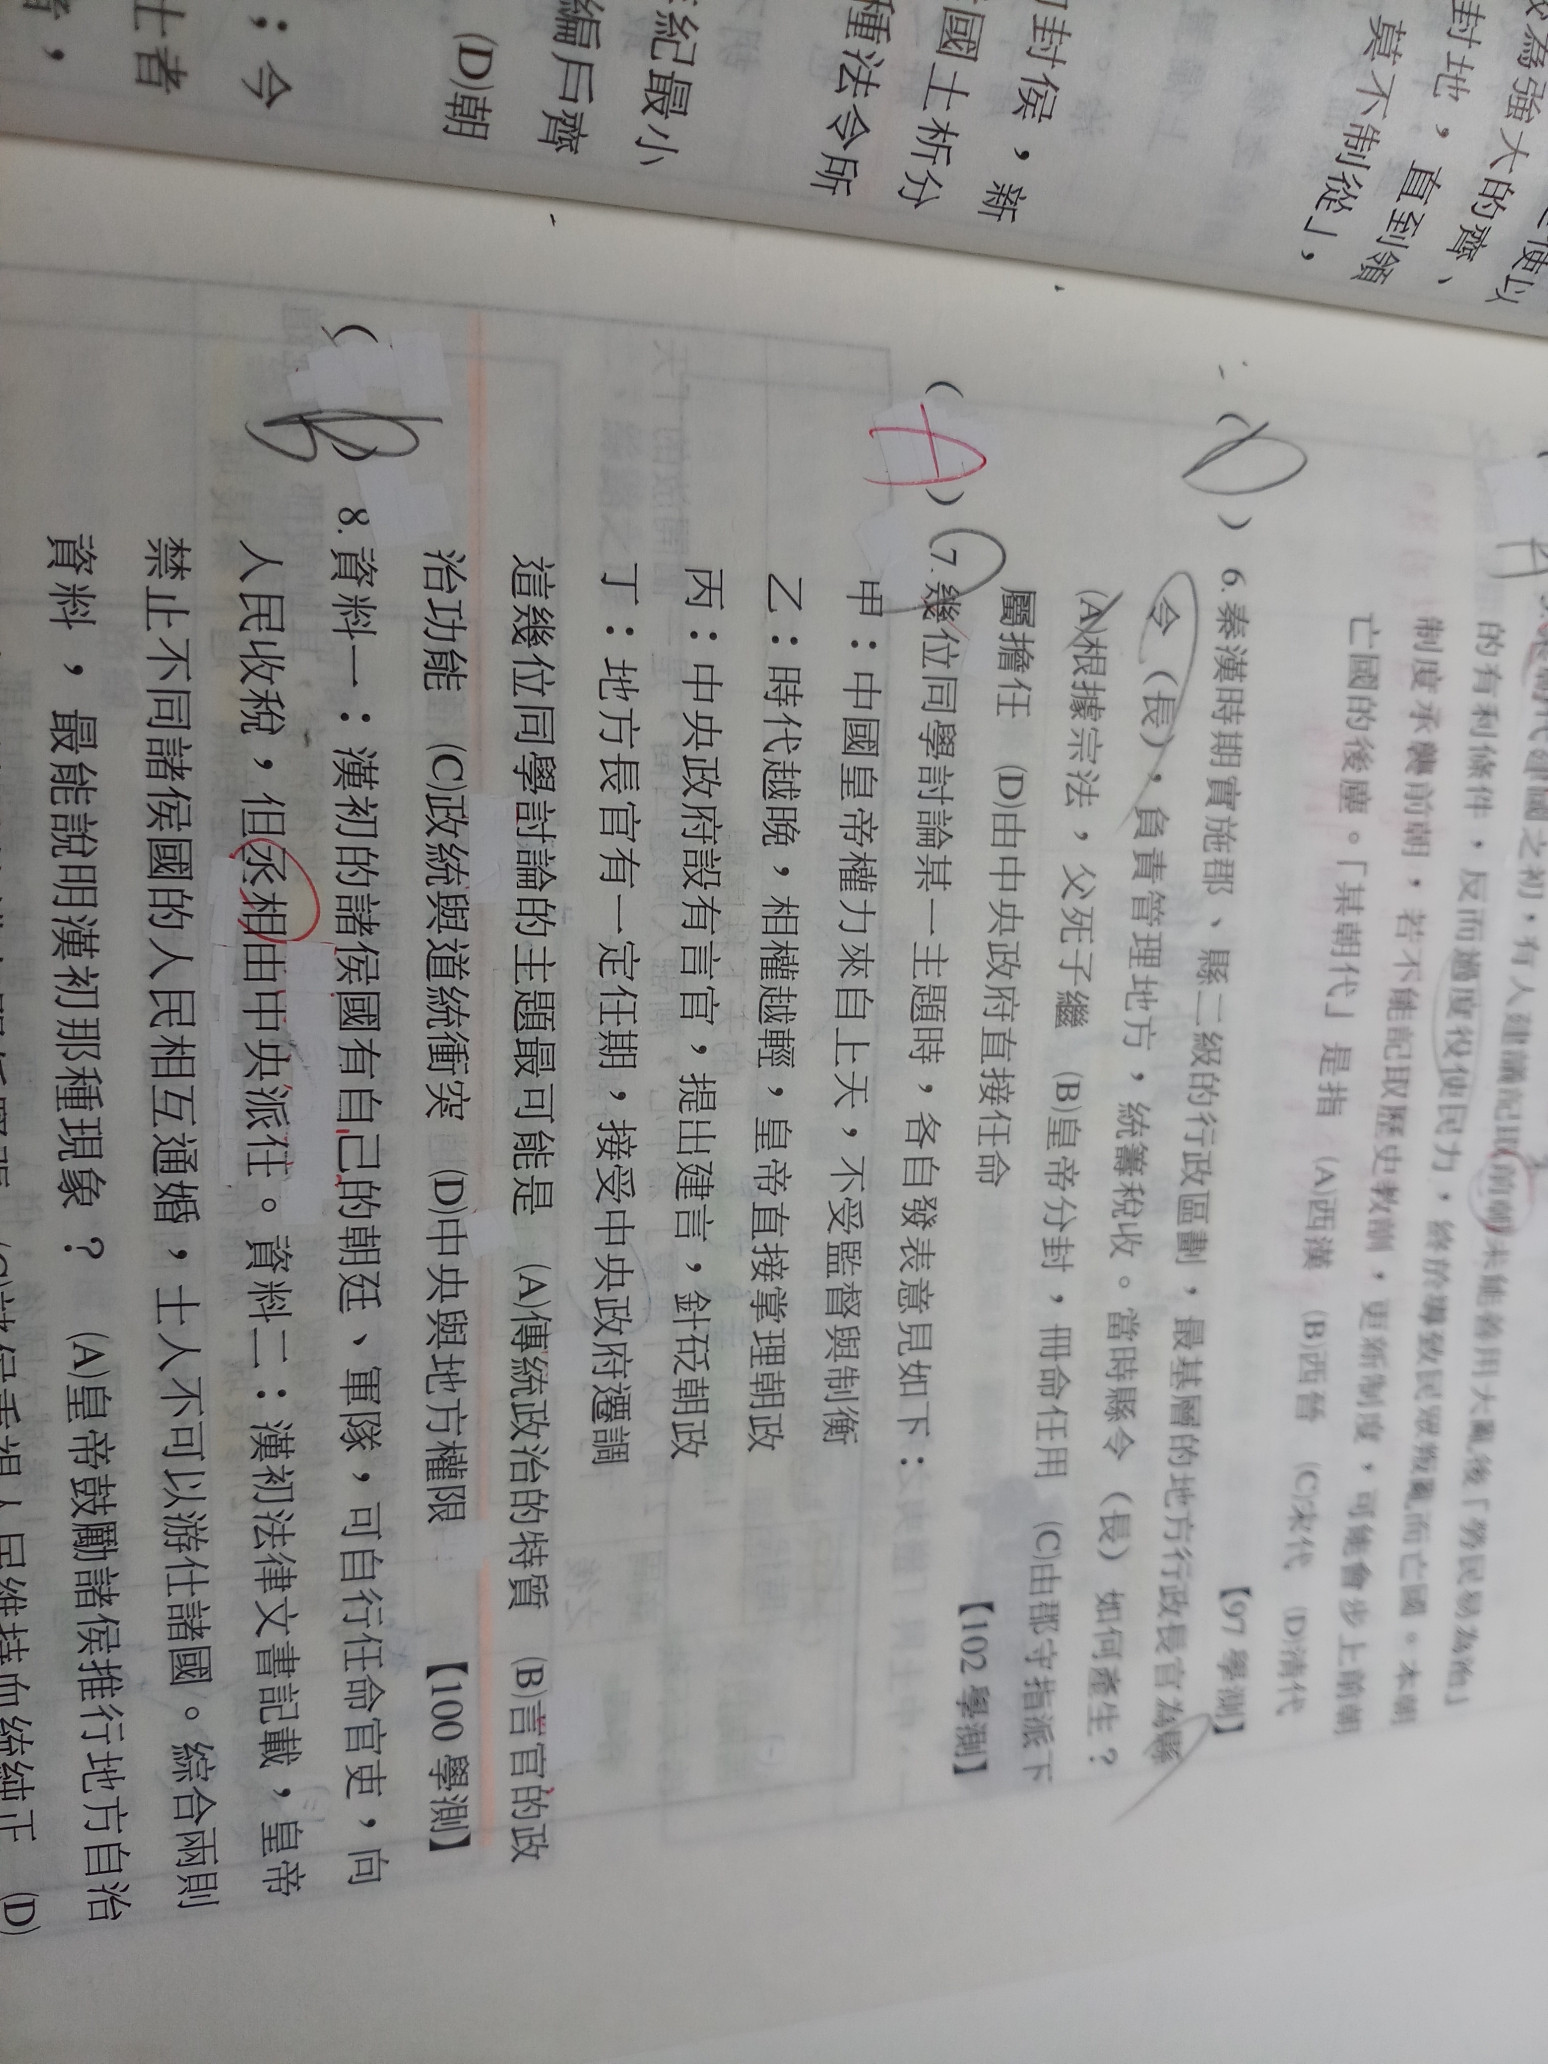 較為強大的齊、
封地，直到領
莫不制從」，
封侯，新
國土析分
種法令所
紀最小
編戶齊
(D)朝
；今
士者
的有利條件，反而過度役使民力，終於導致民眾叛亂而亡國。本朝
制度承襲前朝，若不能記取歷史教訓，更新制度，可能會步上前朝
亡國的後塵。「某朝代」是指 (A)西漢 (B)西晉 (C)宋代 (D)清代
【97 學測】
( D ) 6. 秦漢時期實施郡、縣二級的行政區劃，最基層的地方行政長官為縣
令（長），負責管理地方，統籌稅收。當時縣令（長）如何產生？
(A)根據宗法，父死子繼 (B)皇帝分封，冊命任用 (C)由郡守指派下
屬擔任 (D)由中央政府直接任命
【102 學測】
( A ) 7. 幾位同學討論某一主題時，各自發表意見如下：
甲：中國皇帝權力來自上天，不受監督與制衡
乙：時代越晚，相權越輕，皇帝直接掌理朝政
丙：中央政府設有言官，提出建言，針砭朝政
丁：地方長官有一定任期，接受中央政府遷調
這幾位同學討論的主題最可能是 (A)傳統政治的特質 (B)言官的政
治功能 (C)政統與道統衝突 (D)中央與地方權限 【100 學測】
( B ) 8. 資料一：漢初的諸侯國有自己的朝廷、軍隊，可自行任命官吏，向
人民收稅，但丞相由中央派任。資料二：漢初法律文書記載，皇帝
禁止不同諸侯國的人民相互通婚，士人不可以游仕諸國。綜合兩則
資料，最能說明漢初那種現象？ (A)皇帝鼓勵諸侯推行地方自治
(C)諸侯重視人民維持血統純正 (D)